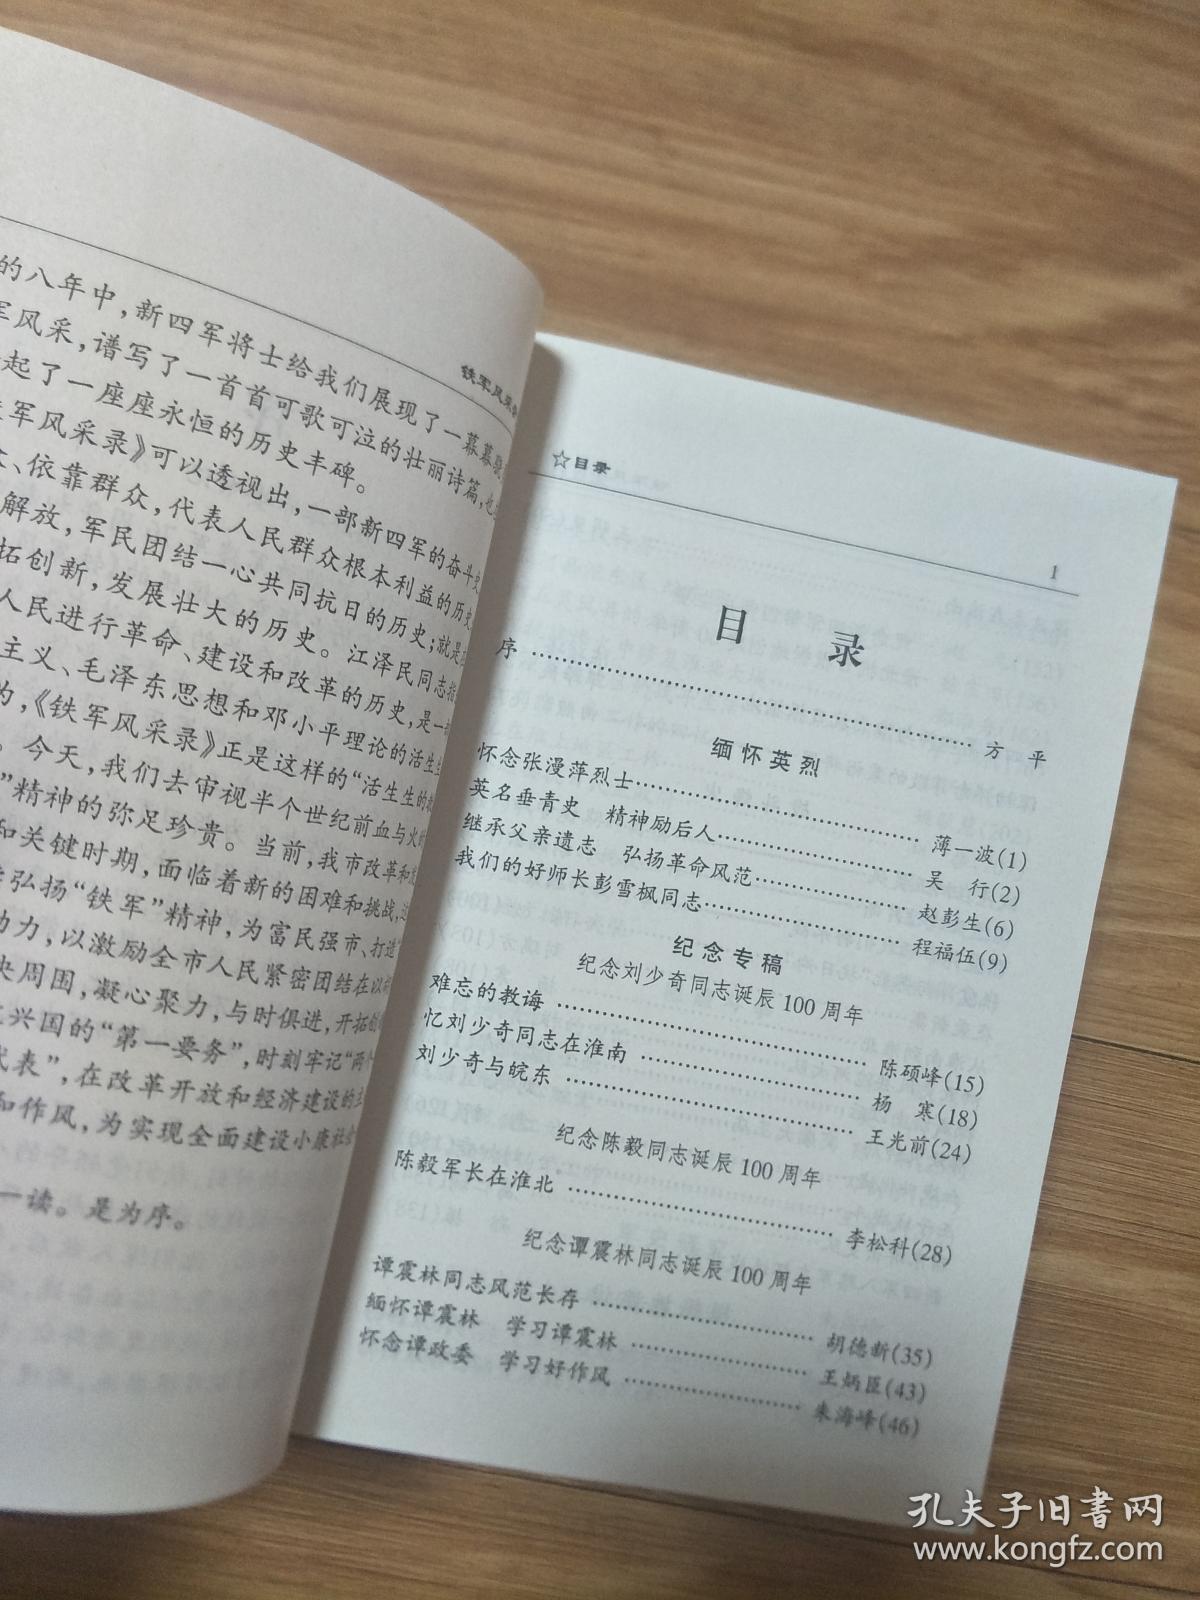 铁军风采
的八年中，新四军将士给我们展现了一幕幕
军风采，谱写了一首首可歌可泣的壮丽诗篇，也
起了一座座永恒的历史丰碑。
军风采录》可以透视出，一部新四军的奋斗史
、依靠群众，代表人民群众根本利益的历史
解放，军民团结一心共同抗日的历史；就是
拓创新，发展壮大的历史。江泽民同志指
人民进行革命、建设和改革的历史，是一
主义、毛泽东思想和邓小平理论的活生生
的，《铁军风采录》正是这样的“活生生的教
。今天，我们去审视半个世纪前血与火
”精神的弥足珍贵。当前，我市改革和
和关键时期，面临着新的困难和挑战，
弘扬“铁军”精神，为富民强市、打造
动力，以激励全市人民紧密团结在以
央周围，凝心聚力，与时俱进，开拓
兴国的“第一要务”，时刻牢记“两个
代表”，在改革开放和经济建设的
和作风，为实现全面建设小康社会
一读。是为序。
☆目录
1
目 录
序 …… 方 平
缅怀英烈
怀念张漫萍烈士 …… 薄一波(1)
英名垂青史 精神励后人 …… 吴 行(2)
继承父亲遗志 弘扬革命风范 …… 赵彭生(6)
我们的好师长彭雪枫同志 …… 程福伍(9)
纪念专稿
纪念刘少奇同志诞辰100周年
难忘的教诲 …… 陈硕峰(15)
忆刘少奇同志在淮南 …… 杨 寒(18)
刘少奇与皖东 …… 王光前(24)
纪念陈毅同志诞辰100周年
陈毅军长在淮北 …… 李松科(28)
纪念谭震林同志诞辰100周年
谭震林同志风范长存 …… 胡德新(35)
缅怀谭震林 学习谭震林 …… 王炳臣(43)
怀念谭政委 学习好作风 …… 朱海峰(46)
孔夫子旧书网
www.kongfz.com